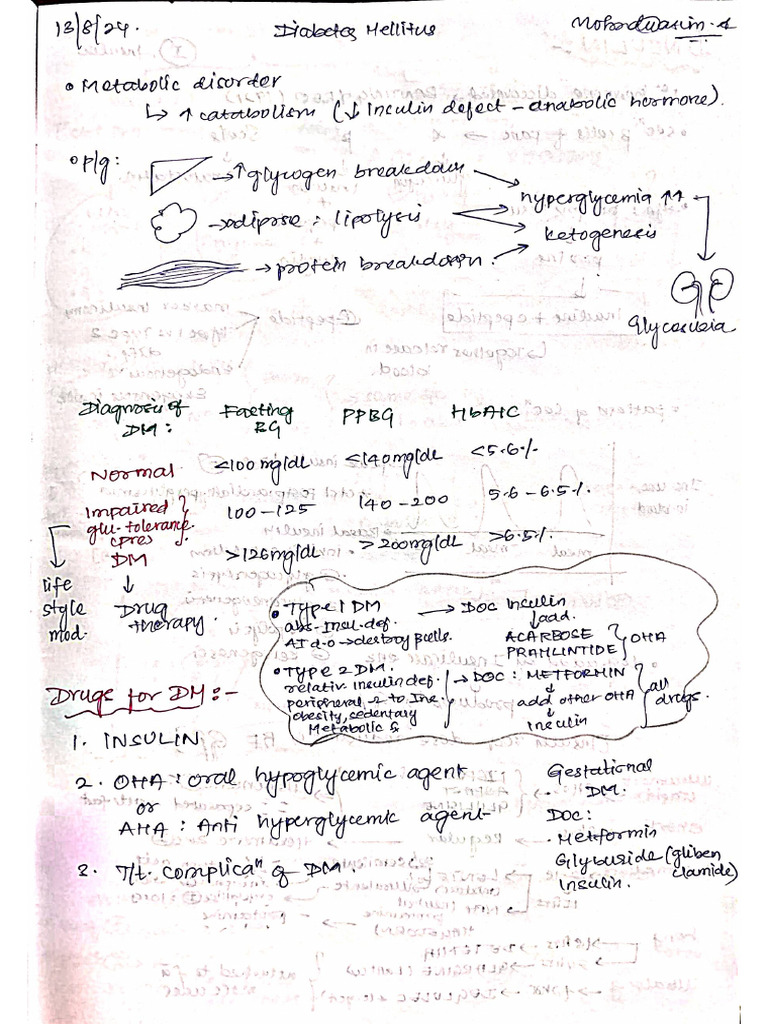 13/8/24.
Diabetes Mellitus
• Metabolic disorder
↳ ↑ catabolism (↓ Insulin defect - anabolic hormone).
• P/g:
→ ↑ glycogen breakdown
→ adipose : lipolysis
→ protein breakdown.
hyperglycemia ↑↑
ketogenesis
Glycosuria
Diagnosis of DM: Fasting BG PPBG HbA1C
Normal <100 mg/dl <140 mg/dl <5.6%
Impaired glu-tolerance (pre) 100-125 140-200 5.6-6.5%.
DM >126 mg/dl >200 mg/dl >6.5%.
life style mod.
Drug therapy.
• TYPE 1 DM → DOC Insulin
abs-Insu-def. ↓ add.
AI d.o → destroy β cells. ACARBOSE
PRAMLINTIDE } OHA
• TYPE 2 DM. → DOC : METFORMIN
relativ. insulin def. ↓
peripheral r to Ins. add other OHA
obesity, sedentary ↓
Metabolic S. Insulin
all drugs.
Drugs for DM :-
1. INSULIN
2. OHA : oral hypoglycemic agent
or
AHA : Anti hyperglycemic agent
3. T/t. complicaⁿ of DM.
Gestational
DM.
DOC:
· Metformin
Glyburide (gliben
clamide)
Insulin.